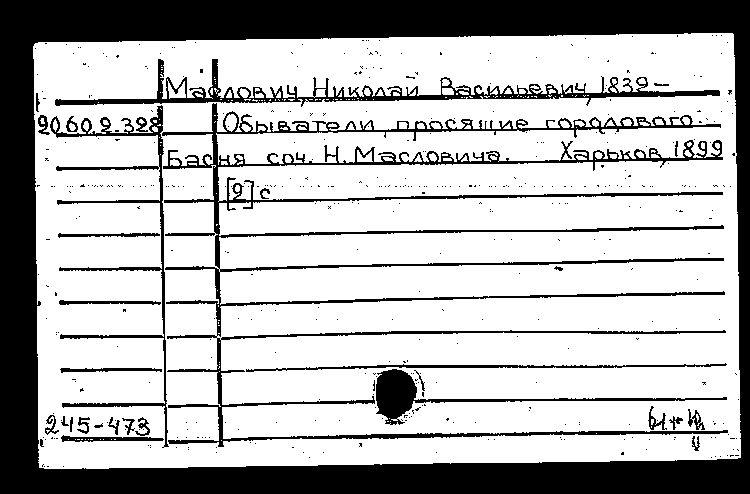 Маслович, Николай Васильевич, 1839-
20.60.2.328 Обыватели, просящие городового.
Басня соч. Н. Масловича. Харьков, 1899
[2] с
245-473